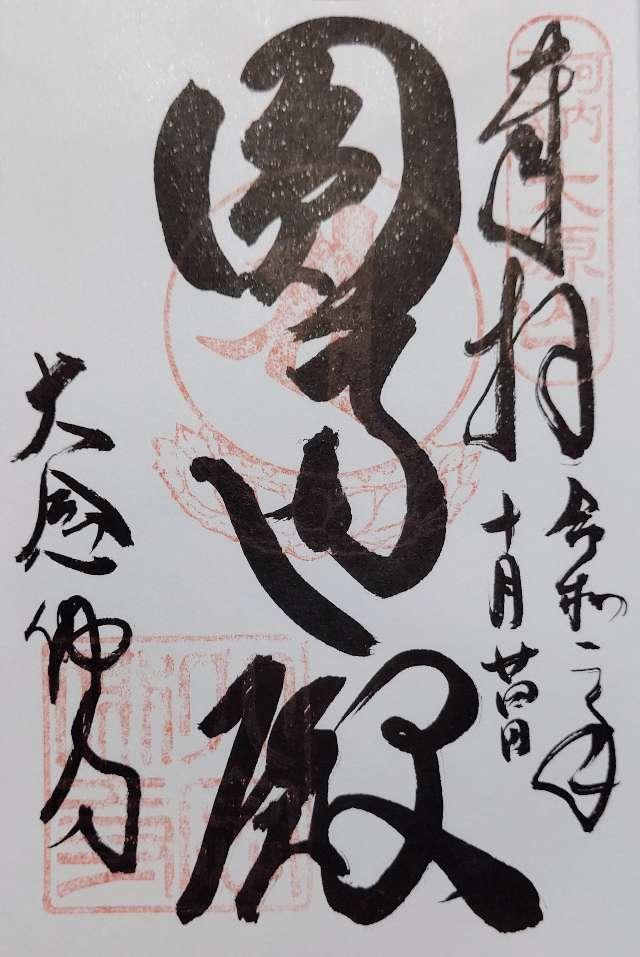 河内 大原山
奉拝
令和二年
十月廿四日
圓通殿
大念佛寺